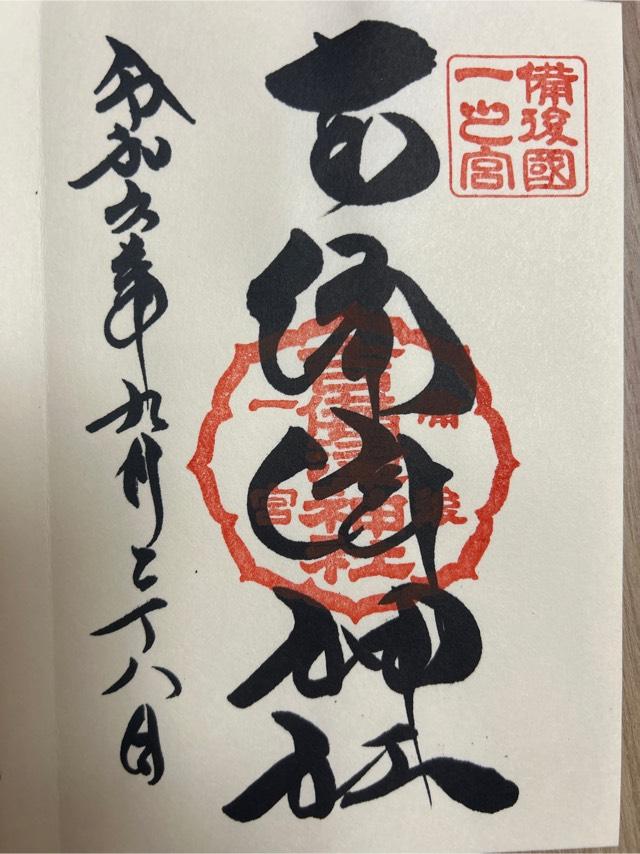 備後國
一之宮
吉備津神社
備後
吉備津神社
一宮
令和六年九月二十八日